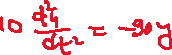 10 d²y/dt² = -90y